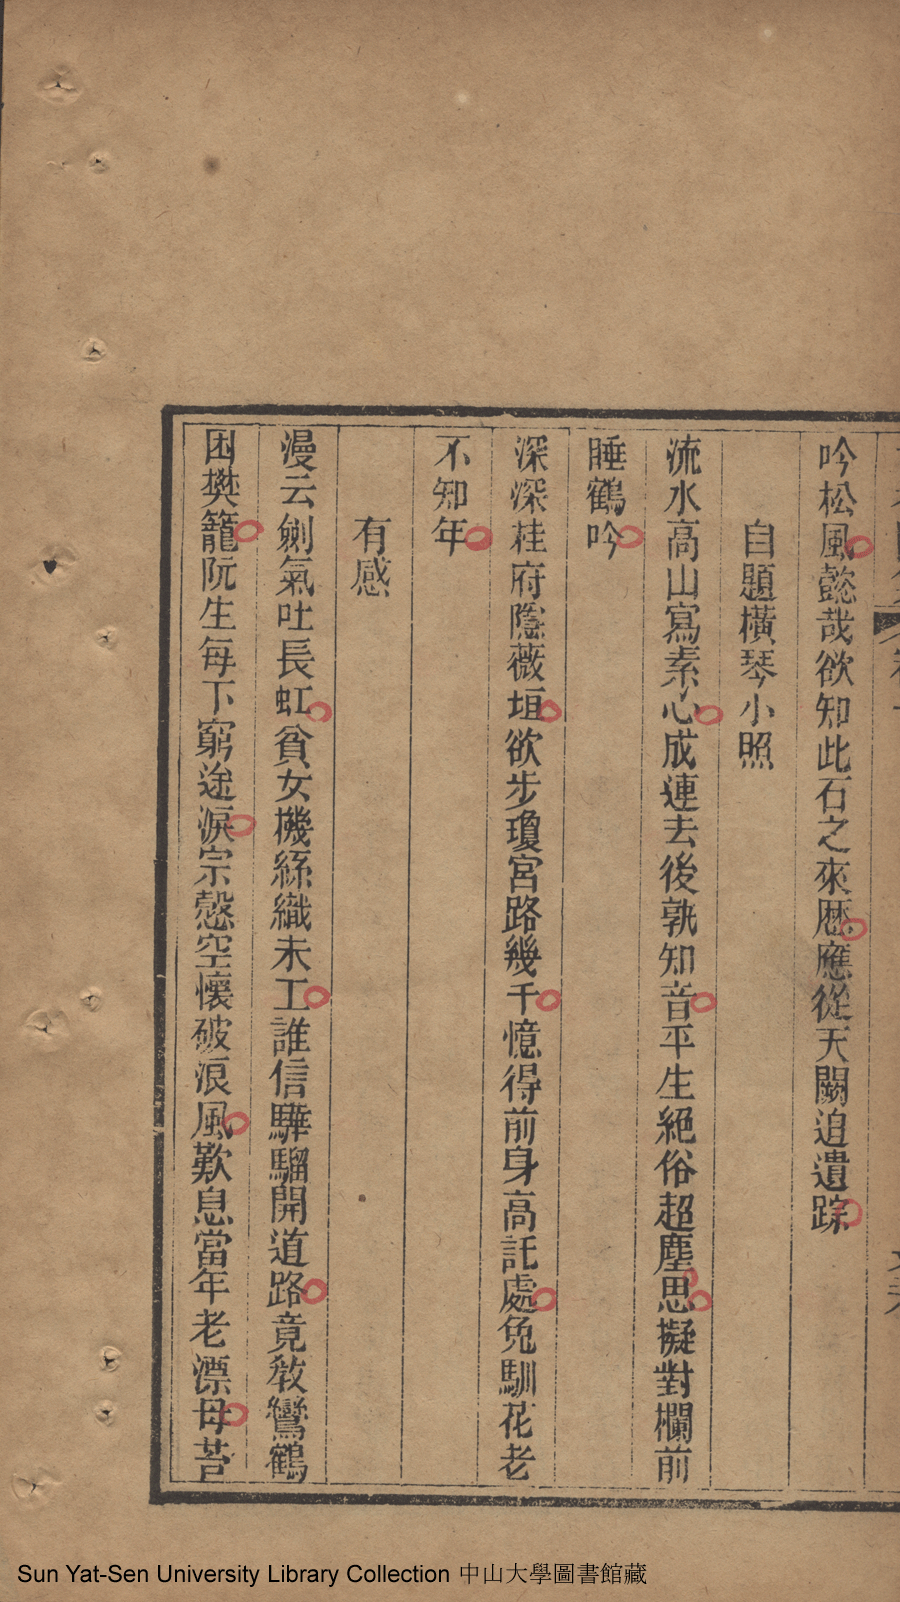 吟松風懿哉欲知此石之來歷應從天闕追遺踪
自題橫琴小照
流水高山寫素心成連去後孰知音平生絕俗超塵思擬對欄前
睡鶴吟
深深桂府隱薇垣欲步瓊宮路幾千憶得前身高託處兔馴花老
不知年
有感
漫云劍氣吐長虹貧女機絲織未工誰信驊騮開道路竟教鸞鶴
困樊籠阮生每下窮途淚宗慤空懷破浪風歎息當年老漂母苔
Sun Yat-Sen University Library Collection 中山大學圖書館藏